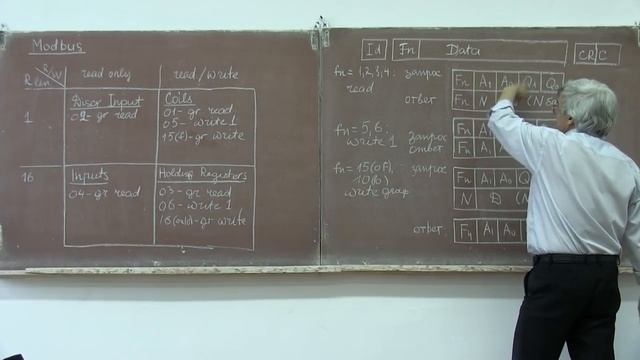 Modbus
R/W
R len
read only
read/write
1
Discr Input
02- gr read
Coils
01- gr read
05- write 1
15(f)- gr write
16
Inputs
04- gr read
Holding Registers
03- gr read
06- write 1
16(0x10)-gr write
Id Fn Data CRC
fn=1,2,3,4: запрос
read
Fn A1 A0 Q1 Q0
ответ
Fn N
fn=5,6: запрос
write 1 ответ
Fn A1 A0
fn=15(0F), запрос
10(16)
write group
Fn A1 A0 Q
N D (N
ответ Fn A1 A0